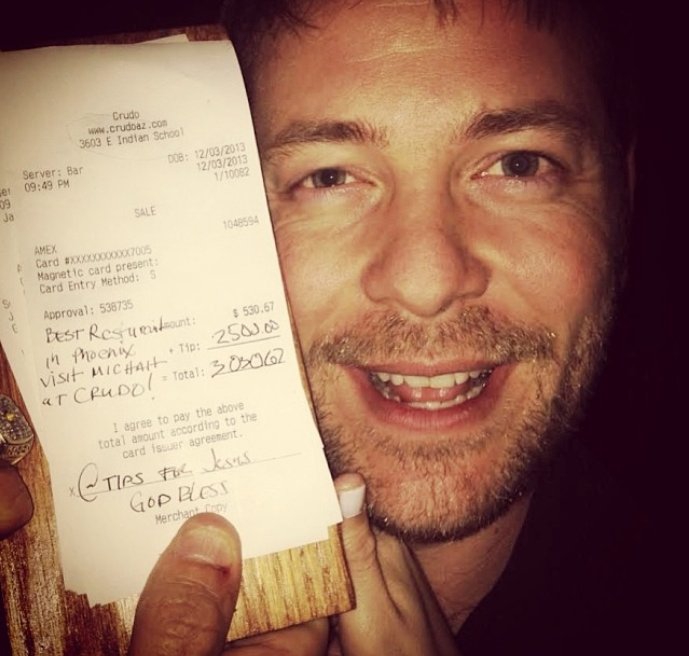 Crudo
www.crudoaz.com
3603 E Indian School
Server: Bar
DOB: 12/03/2013
09:49 PM
12/03/2013
1/10082
SALE
1048594
AMEX
Card #XXXXXXXXXXX7005
Magnetic card present:
Card Entry Method: S
Approval: 538735
Amount: $ 530.67
+ Tip: 2500.00
= Total: 3030.67
BEST Resturant
in Phoenix
VISIT MICHAH
at CRUDO!
I agree to pay the above
total amount according to the
card issuer agreement.
x @TIPS FOR Jesus
GOD BLESS
Merchant Copy